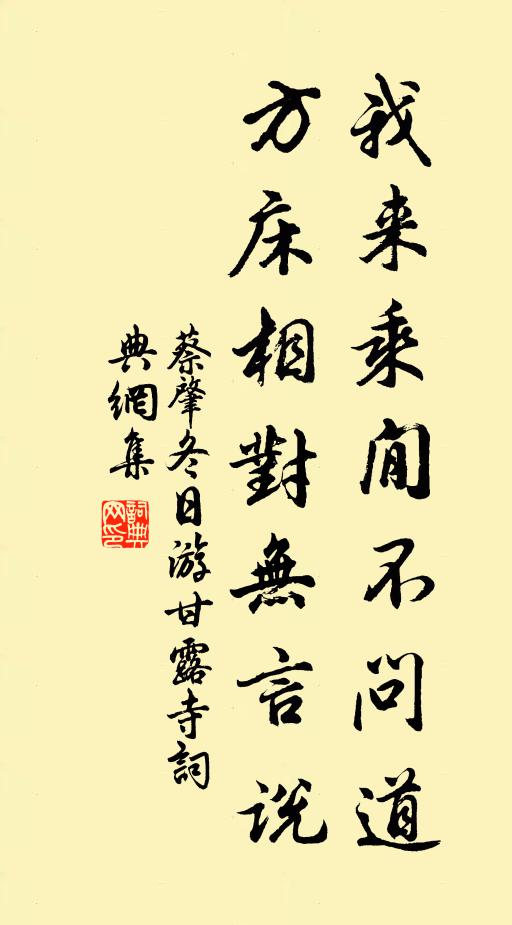 我来乘间不问道
方床相對無言說
蔡肇冬日游甘露寺詞
典網集
詞典网印